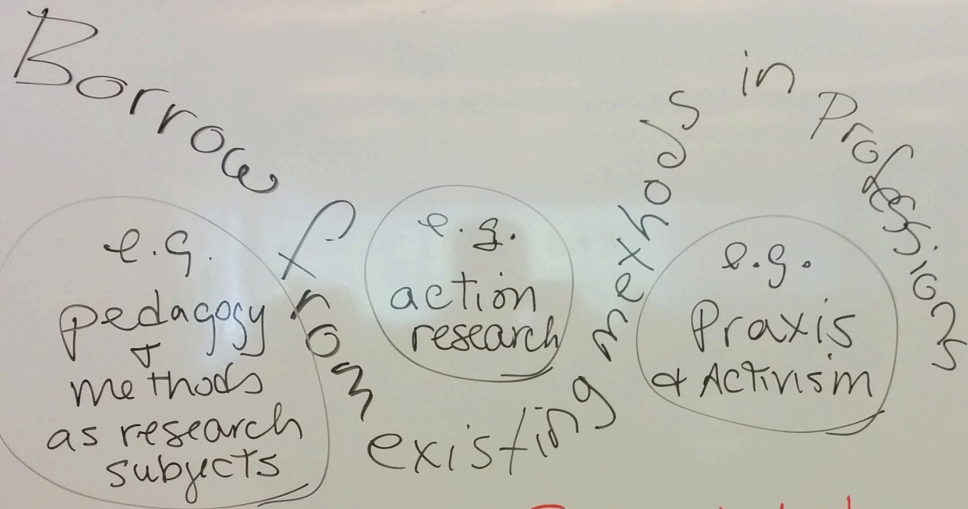 Borrow from existing methods in Professions
e.g.
pedagogy
+
methods
as research
subjects
e.g.
action
research
e.g.
Praxis
& Activism